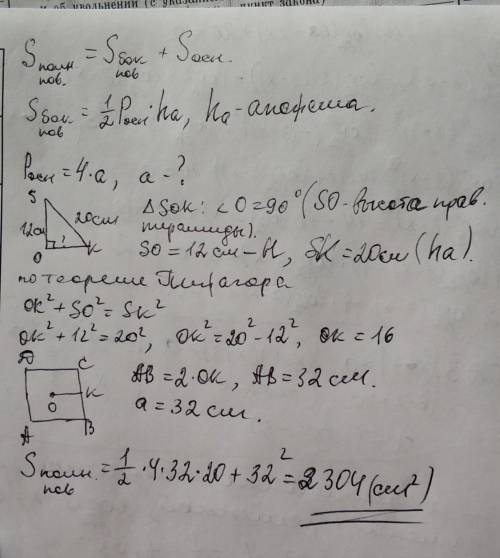 об увольнении (с указа пункт закона)
S полн. пов. = S бок пов + S осн.
S бок пов = 1/2 Pосн · ha, ha - апофема.
Pосн = 4·a, a - ?
S
12см 20см
O ? K
ΔSOK: ∠O = 90° (SO - высота прав.
пирамиды).
SO = 12 см - H, SK = 20см (ha).
по теореме Пифагора
OK² + SO² = SK²
OK² + 12² = 20², OK² = 20² - 12², OK = 16
D C
O K
A B
AB = 2·OK, AB = 32 см.
a = 32 см.
S полн. пов = 1/2 · 4·32·20 + 32² = 2304 (см²)